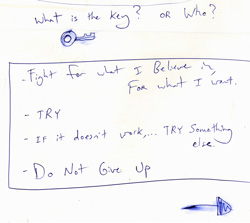 What is the key? OR Who?
- Fight for what I Believe in,
For what I want.
- TRY
- IF it doesn't work,... TRY Something
else.
- Do Not Give Up